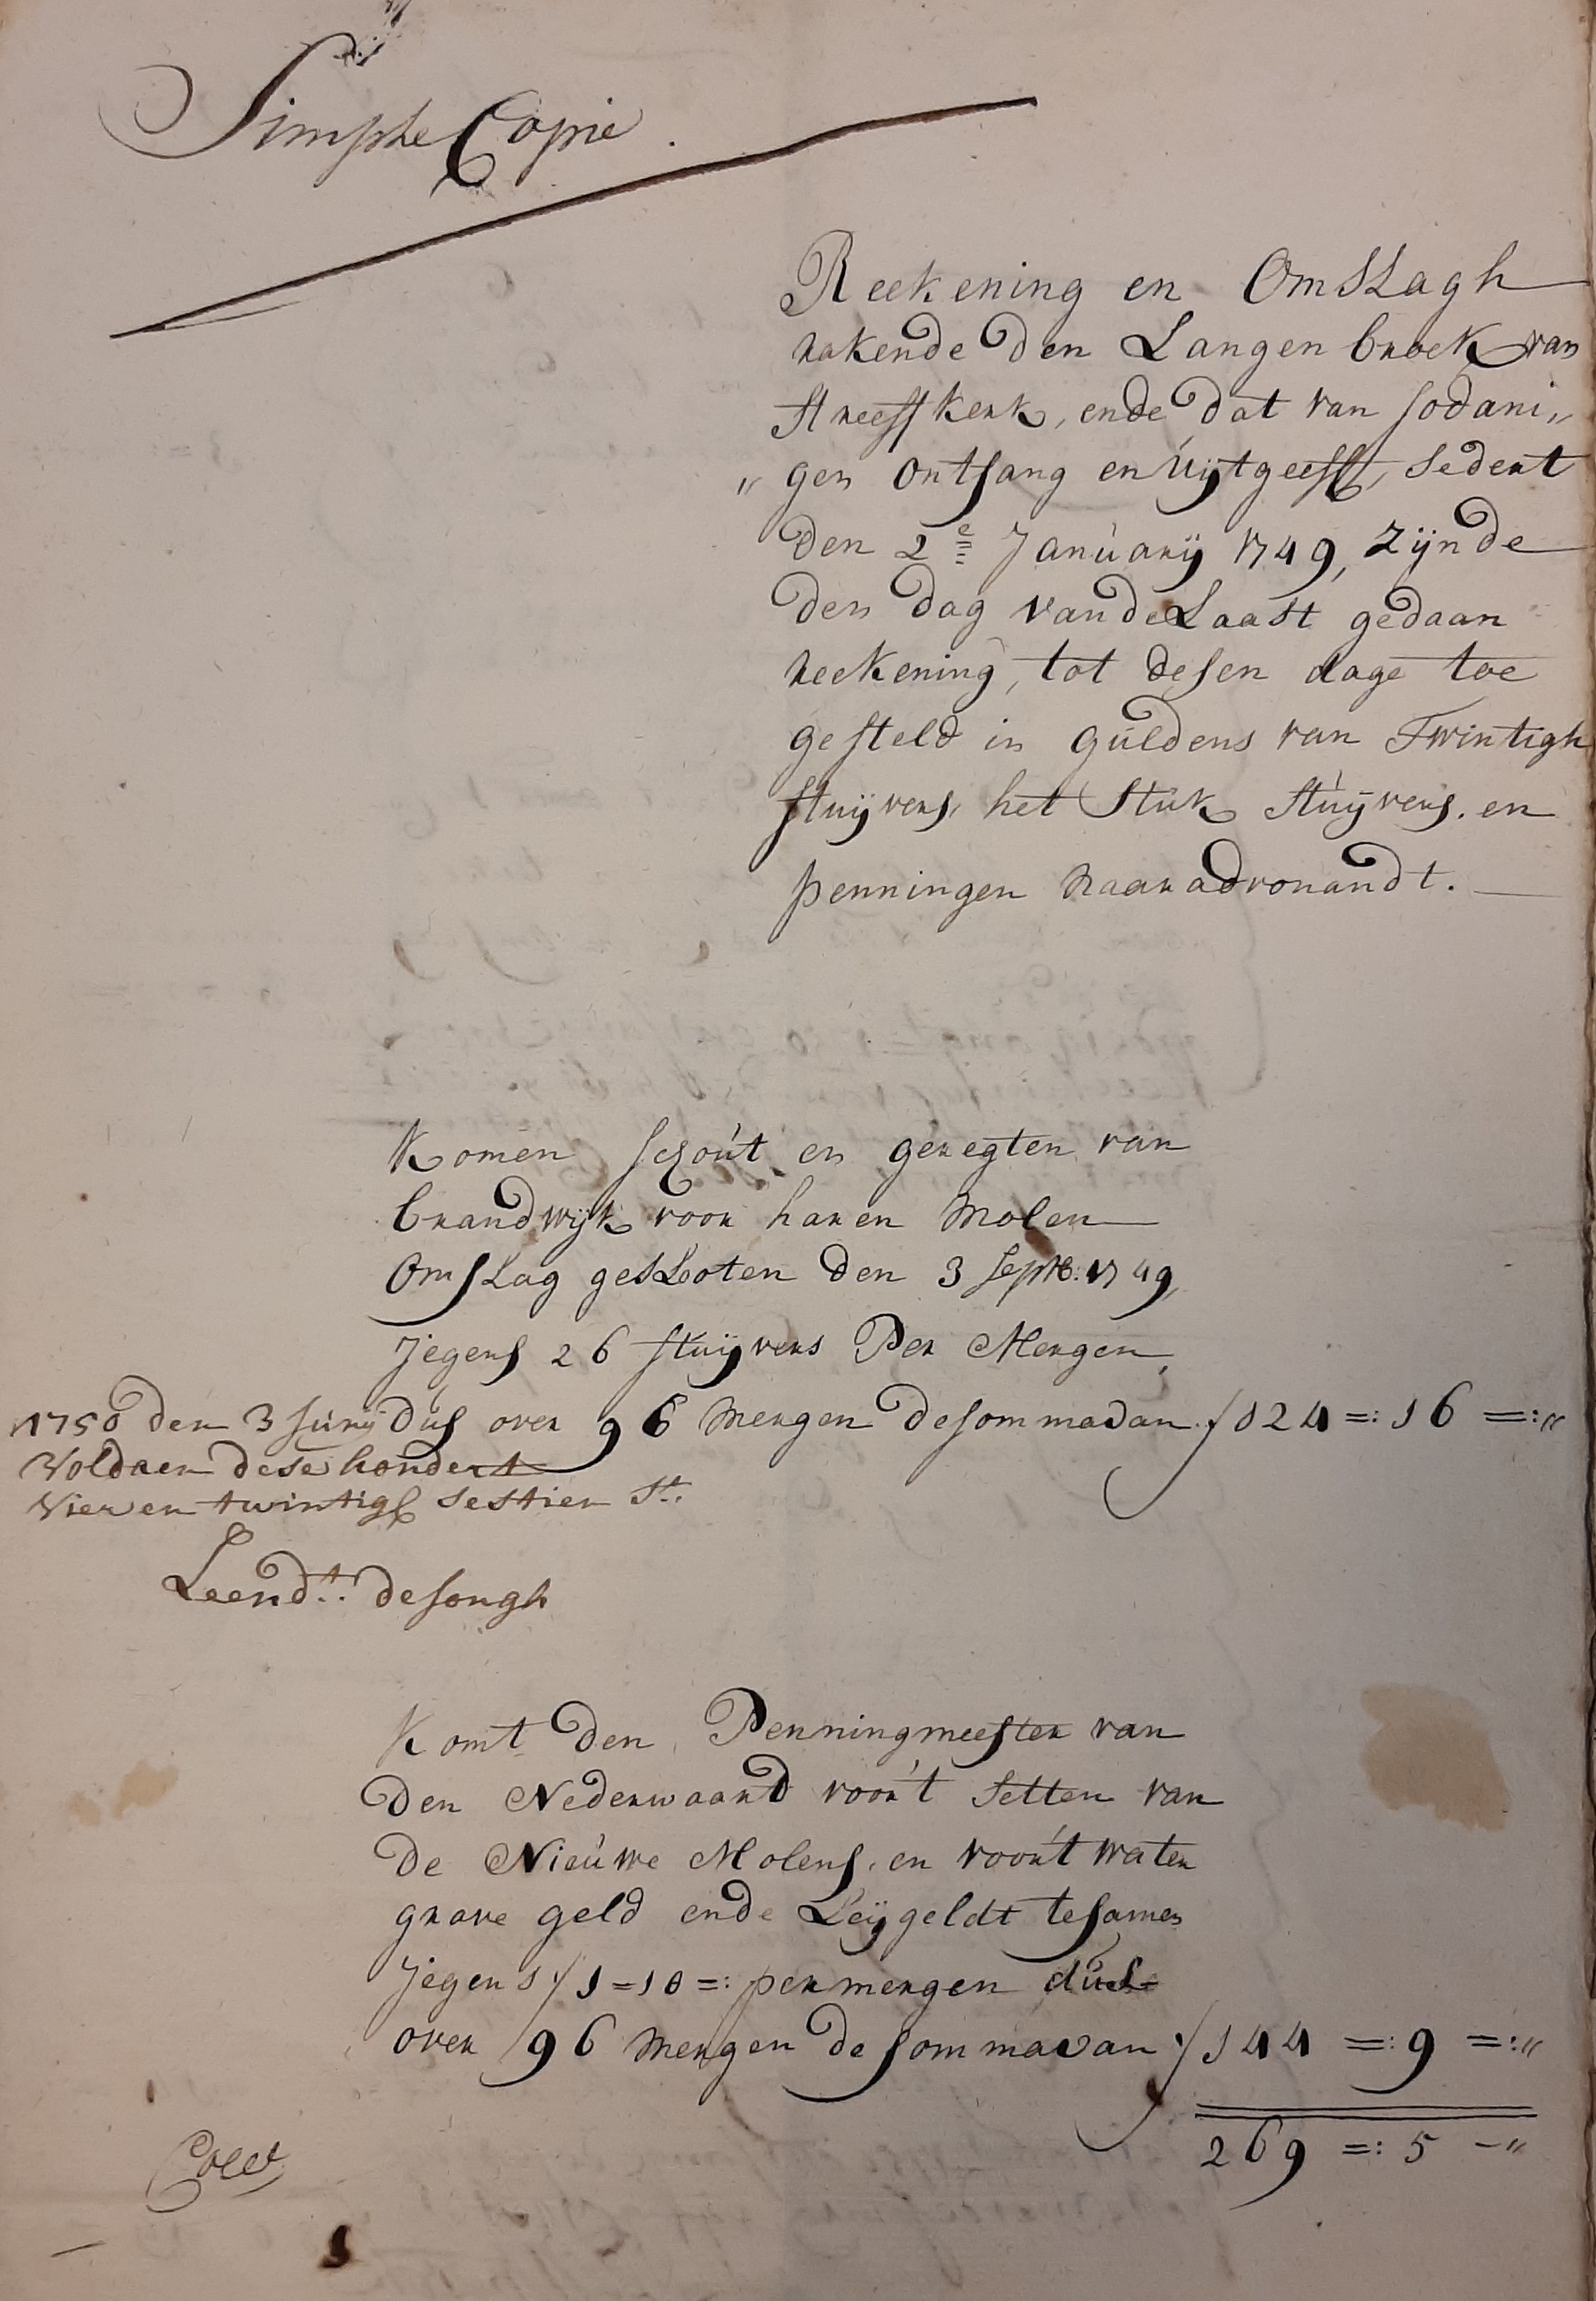 Simple Copie.
Reekening en OmSLagh
rakende den Langen broek van
Streeffkerk, ende dat van sodani„
„gen ontfang en uÿtgeeff, sedert
den 2e Januarÿ 1749, Zÿnde
den dag van de Laast gedaan
reekening, tot desen dage toe
gesteld in guldens van Twintigh
stuÿvers, het Stuk Stuÿvers. en
penningen naar advonandt.
Komen schout en geregten van
brandwÿk voor haren Molen
OmsLag gesLooten den 3 septb: 1749,
Jegens 26 stuÿvers Per Mergen,
Dus over 96 Mergen de somma van ƒ 124 =: 16 =:"
1750 den 3 Junÿ
Voldaen dese hondert
Vier en twintigh sestien St:
Leendt: de Jongh
Komt den Penningmeester van
Den Nederwaard voor't Setten van
De Nieuwe Molens, en voor't water
grave geld ende Leÿgeldt tesamen
Jegens ƒ 1=10=: per mergen dus
over 96 Mergen de somma van ƒ 144 =: 9 =:"
269 =: 5 -"